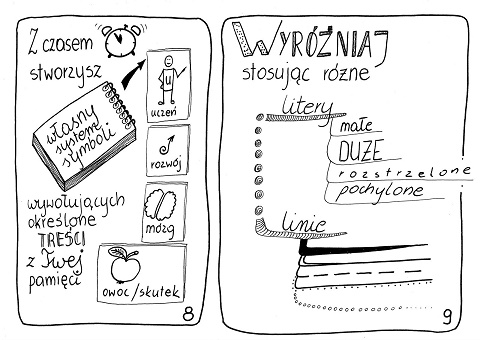 Z czasem
stworzysz
własny
system
symboli
u
uczeń
rozwój
mózg
owoc/skutek
wywołujących
określone
TREŚCI
z Twej
pamięci
8
WYRÓŻNIAJ
stosując różne
litery
małe
DUŻE
rozstrzelone
pochylone
linie
9